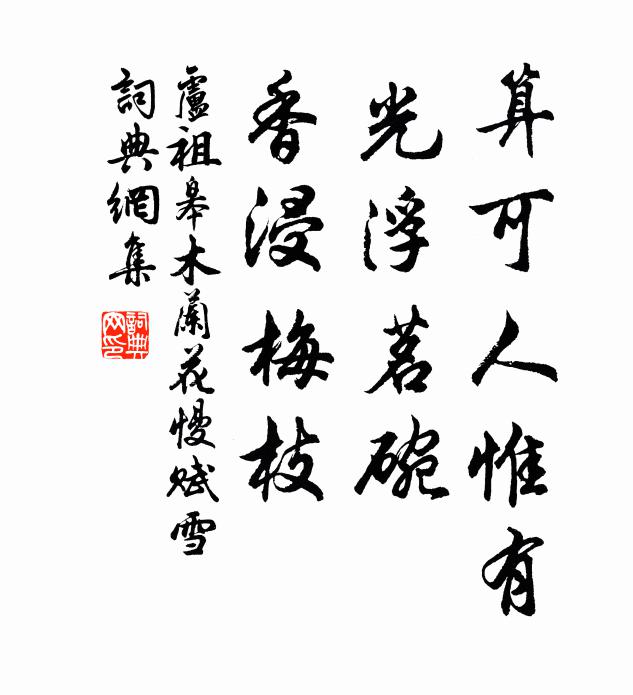 算可人惟有
光浮茗碗
香浸梅枝
盧祖皋木蘭花慢賦雪
詞典網集
詞典
网印